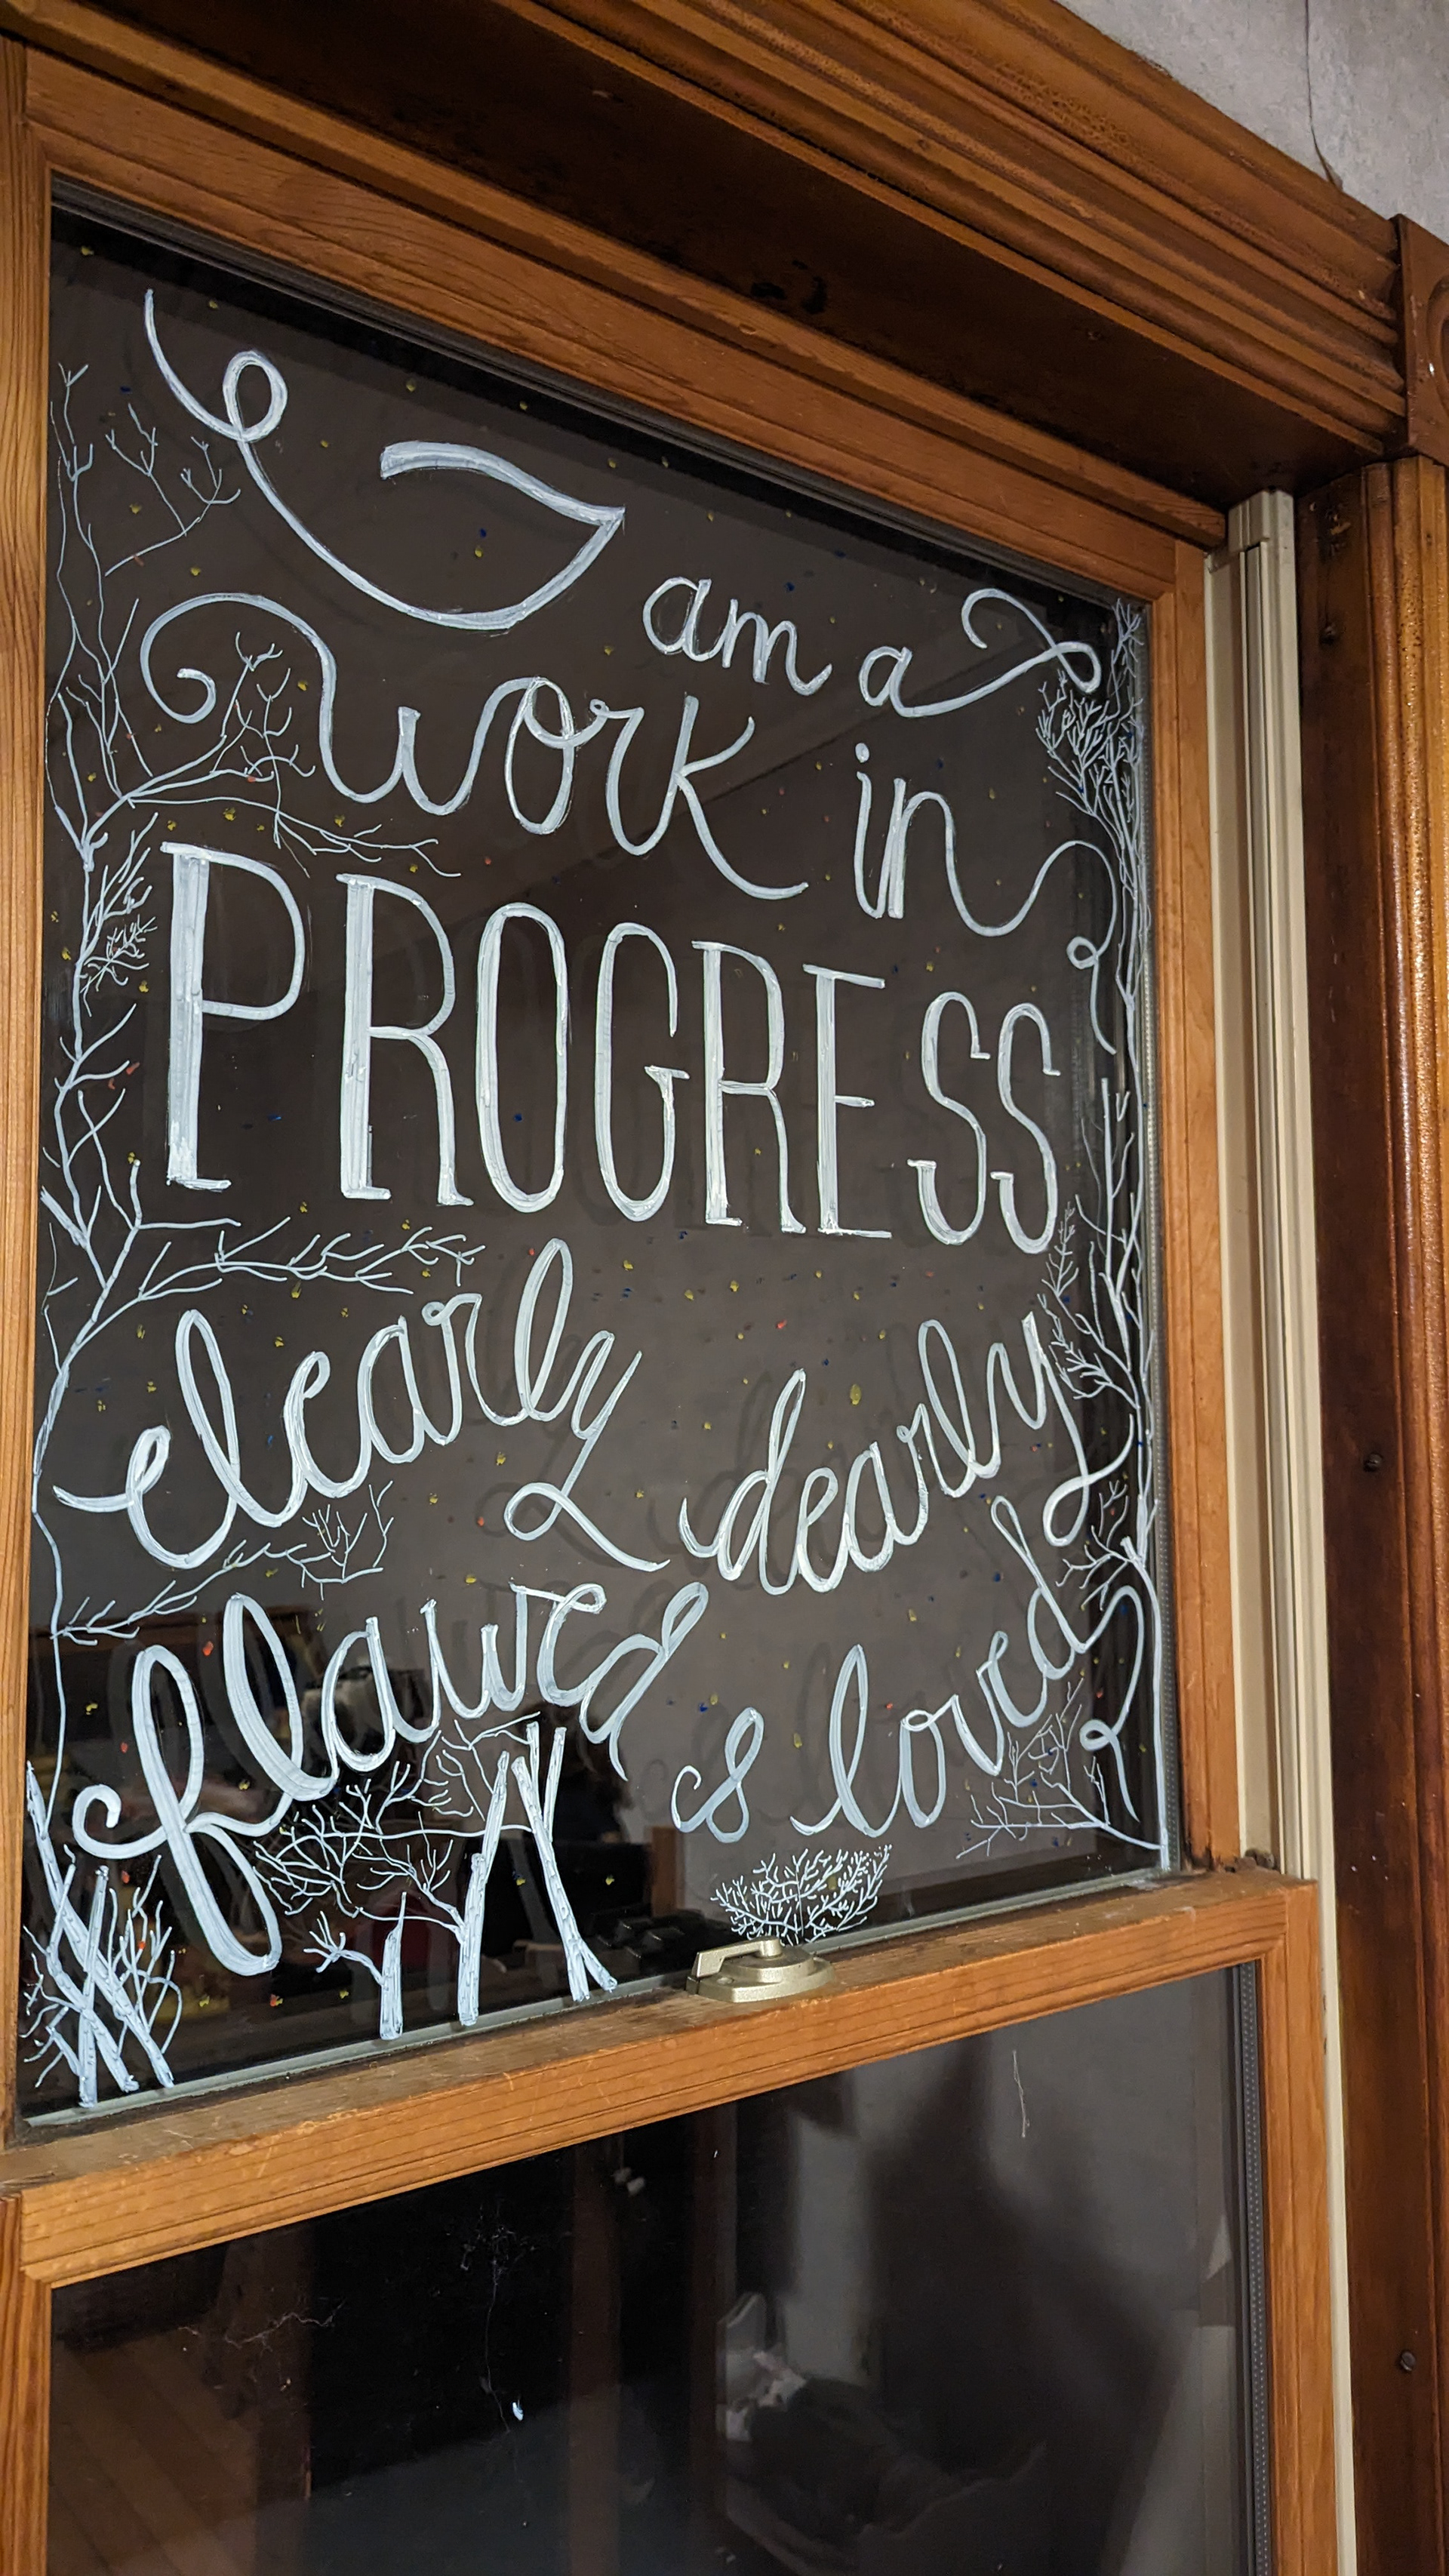 I am a
work in
PROGRESS
clearly dearly
flawed & loved